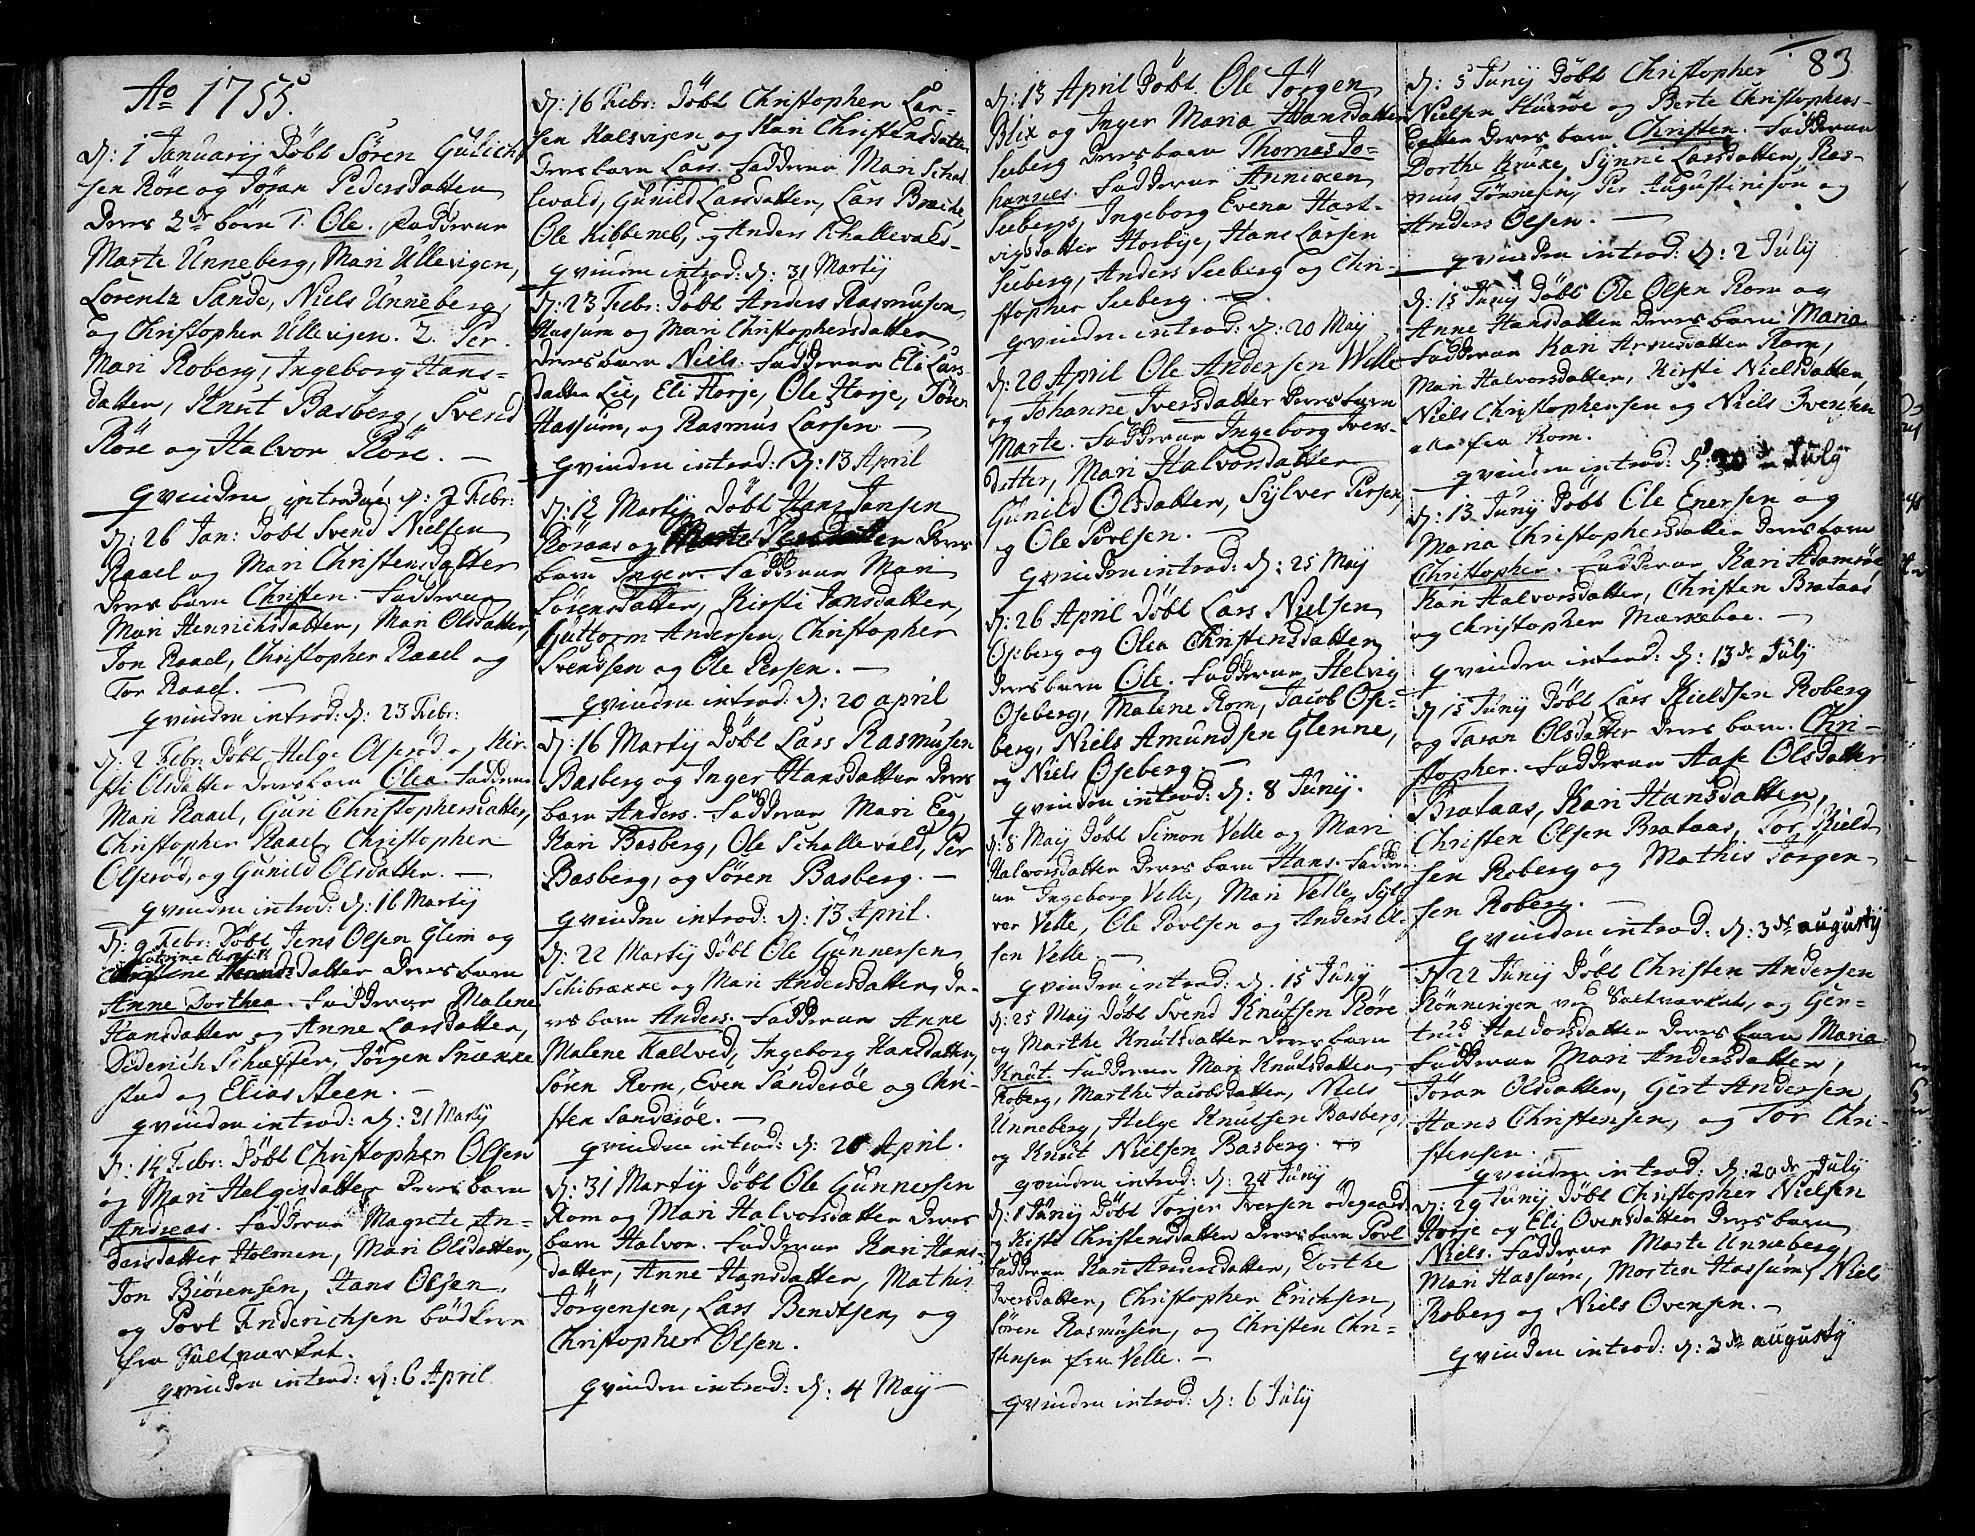 Ao 1755.
d: 1 Januarij Döbt Sören Gulich-
sen Röre og Jöran Pedersdatter
deres 2de börn 1. Ole. Fadderne
Marte Unneberg, Mari Ullevigen,
Lorentz Sande, Niels Unneberg,
og Christopher Ullevigen. 2. Per.
Mari Roberg, Ingeborg Hans-
datter, Knut Basberg, Svend
Röre og Halvor Röre. —
qvinden introd: d: 2 Febr:
d: 26 Jan: Döbt Svend Nielsen
Raael og Mari Christensdatter
deres barn Christen. Fadderne
Mari Henrichsdatter, Mari Olsdatter,
Jon Raael, Christopher Raael og
Tor Raael. —
qvinden introd: d: 23 Febr:
d: 2 Febr: Döbt Helge Olsröd og Kir-
sti Olsdatter deres barn Olea. Fadderne
Mari Raael, Guri Christophersdatter,
Christopher Raael, Christopher
Olsröd, og Gunild Olsdatter. —
qvinden introd: d: 16 Martij
d: 9 Febr: Döbt Jens Olsen Glim og
datter deres barn
Anne Dorthea. Fadderne Malene
Hansdatter og Anne Larsdatter,
Diderich Schäffer, Jörgen Snække-
stad og Elias Steen. —
qvinden introd: d: 31 Martij
d: 14 Febr: Döbt Christopher Olsen
og Mari Helgesdatter deres barn
Andreas. Fadderne Magrete An-
dersdatter Holmen, Mari Olsdatter,
Jon Biörensen, Hans Olsen,
og Povl Friderichsen bödker
fra Saltværket.
qvinden introd: d: 6 April
d: 16 Febr: Döbt Christopher Lar-
sen Halsvigen og Kari Christensdatter
deres barn Lars. Fadderne Mari Schal-
levald, Gunild Larsdatter, Lars Bræche,
Ole Kibbenel, og Anders Schallevald.
qvinden introd: d: 31 Martij
d: 23 Febr: Döbt Anders Rasmusen
Hassum og Mari Christophersdatter
deres barn Niels. Fadderne Eli Lars-
datter Lie, Eli Horje, Ole Horje, Sören
Hassum, og Rasmus Larsen —
qvinden introd: d: 13 April
d: 12 Martij Döbt Hans Jansen
Röraas og Marte datter deres
barn Inger. Fadderne Mari
Sörensdatter, Kirsti Jansdatter,
Guttorm Andersen, Christopher
Svendsen og Ole Persen. —
qvinden introd: d: 20 april
d: 16 Martij Döbt Lars Rasmusen
Basberg og Inger Hansdatter deres
barn Anders. Fadderne Mari Eeg,
Kari Basberg, Ole Schallevald, Per
Basberg, og Sören Basberg. —
qvinden introd: d: 13 April.
d: 22 Martij Döbt Ole Gunnersen
Schibrække og Mari Andersdatter, de-
res barn Anders. Fadderne Anne
Malene Kaltved, Ingeborg Hansdatter,
Sören Rom, Even Sanderöe og Chri-
sten Sanderöe. —
qvinden introd: d: 20 April.
d: 31 Martij Döbt Ole Gunnersen
Rom og Mari Halvorsdatter deres
barn Halvor. Fadderne Kari Hans-
datter, Anne Hansdatter, Mathis
Jörgensen, Lars Bendtsen, og
Christopher Olsen.
qvinden introd: d: 4 Maij —
d: 13 April Döbt Ole Jörgen
Blix og Inger Maria Hansdatter
Seeberg deres barn Thomas Jo-
hannes. Fadderne Anniken
Seebergs, Ingeborg Evena Hart-
vigsdatter Horbye, Hans Larsen
Seeberg, Anders Seeberg og Chri-
stopher Seeberg. —
qvinden introd: d: 20 Maij
d: 20 April Ole Andersen Velle
og Johanne Iversdatter deres barn
Marte. Fadderne Ingeborg Ivers-
datter, Mari Halvorsdatter
Gunild Olsdatter, Sylver Persen,
og Ole Povlsen. —
qvinden introd: d: 25 Maij
d: 26 April Döbt Lars Nielsen
Oseberg og Olea Christensdatter
deres barn Ole. Fadderne Helvig
Oseberg, Malene Rom, Jacob Ose-
berg, Niels Amundsen Glenne,
og Niels Oseberg. —
qvinden introd: d: 8 Junij.
d: 8 Maij Döbt Simon Velle og Mari
Halvorsdatter deres barn Hans. Fadder-
ne Ingeborg Velle, Mari Velle, Syl-
ver Velle, Ole Povlsen og Anders Ol-
sen Velle —
qvinden introd: d. 15 Junij
d: 25 Maij Döbt Svend Knutsen Röre
og Marthe Knutsdatter deres barn
Knut. Fadderne Mari Knutsdatter,
Roberg, Marthe Jacobsdatter, Niels
Unneberg, Helge Knutsen Basberg,
og Knut Nielsen Basberg.
qvinden introd: d: 24 Junij
d: 1 Junij Döbt Torjer Iversen ödegaard
og Kirsti Christensdatter deres barn Povl
Fadderne Kari Andersdatter, Dorthe
Iversdatter, Christopher Erichsen,
Sören Rasmusen, og Christen Chri-
stensen fra Velle. —
qvinden introd: d: 6 Julij
83
d: 5 Junij Döbt Christopher
Nielsen Stueröe og Berte Christophers-
datter deres barn Christen. Fadderne
Dorthe Kruke, Synni Larsdatter, Ras-
mus Tönnesen, Per Augustinisön og
Anders Olsen. —
qvinden introd: d: 2 Julij
d: 15 Junij Döbt Ole Olsen Rom og
Anne Hansdatter deres barn Maria
Fadderne Kari Arnesdatter Rom,
Mari Halvorsdatter, Kirsti Nielsdatter,
Niels Christophersen og Niels Evensen
alle fra Rom.
qvinden introd: d: Julij
d: 13 Junij Döbt Ole Enersen og
Maria Christophersdatter deres barn
Christopher. Fadderne Kari Adamröe,
Kari Halvorsdatter, Christen Brataas
og Christopher Markeboe. —
qvinden introd: d: 13de Julij
d: 15 Junij Döbt Lars Kieldsen Roberg
og Taran Olsdatter deres barn Chri-
stopher. Fadderne Aase Olsdatter
Brataas, Kari Hansdatter,
Christen Olsen Brataas, Tor Kield-
sen Roberg og Mathis Jörgen-
sen Roberg. —
qvinden introd: d: 3de augustij
d: 22 Junij Döbt Christen Andersen
Rönningen ved Saltværket, og Ger-
trud Haldorsdatter deres barn Maria.
Fadderne Mari Andersdatter,
Jöran Olsdatter, Gert Andersen,
Hans Christensen, og Tor Chri-
stensen. —
qvinden introd: d: 20de Julij
d: 29 Junij Döbt Christopher Nielsen
Horje og Eli Ovensdatter deres barn
Niels. Fadderne Marte Unneberg,
Mari Hassum, Morten Hassum, Niel
Roberg og Niels Ovensen. —
qvinden introd: d: 3de augustij